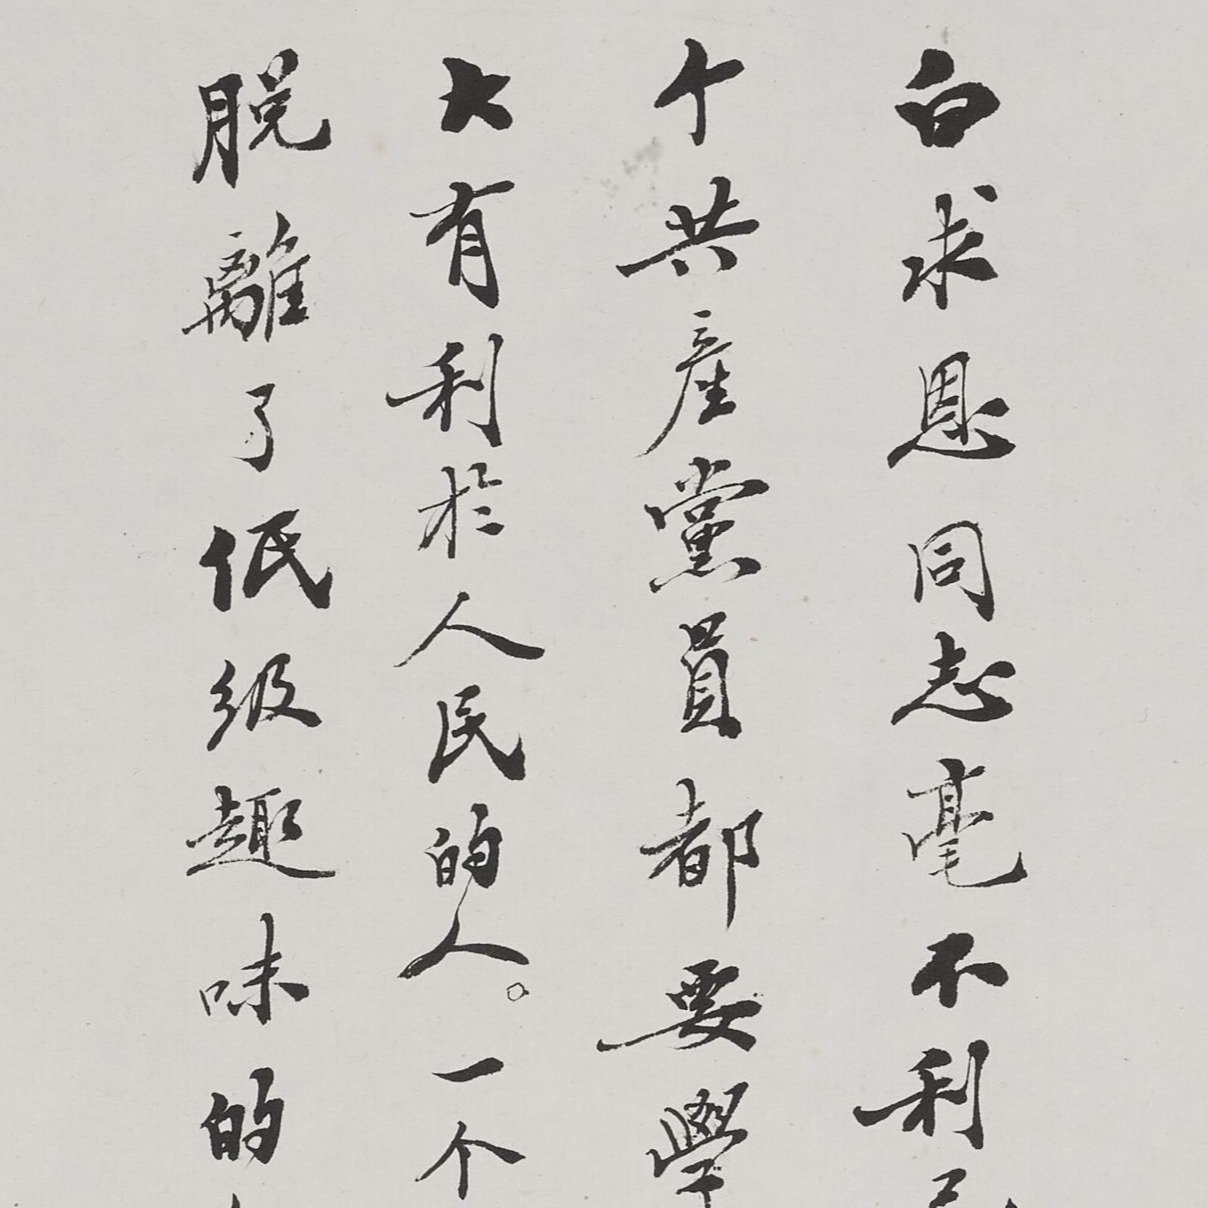 白求恩同志毫不利己
个共産黨員都要學
大有利於人民的人。一个
脱離了低级趣味的